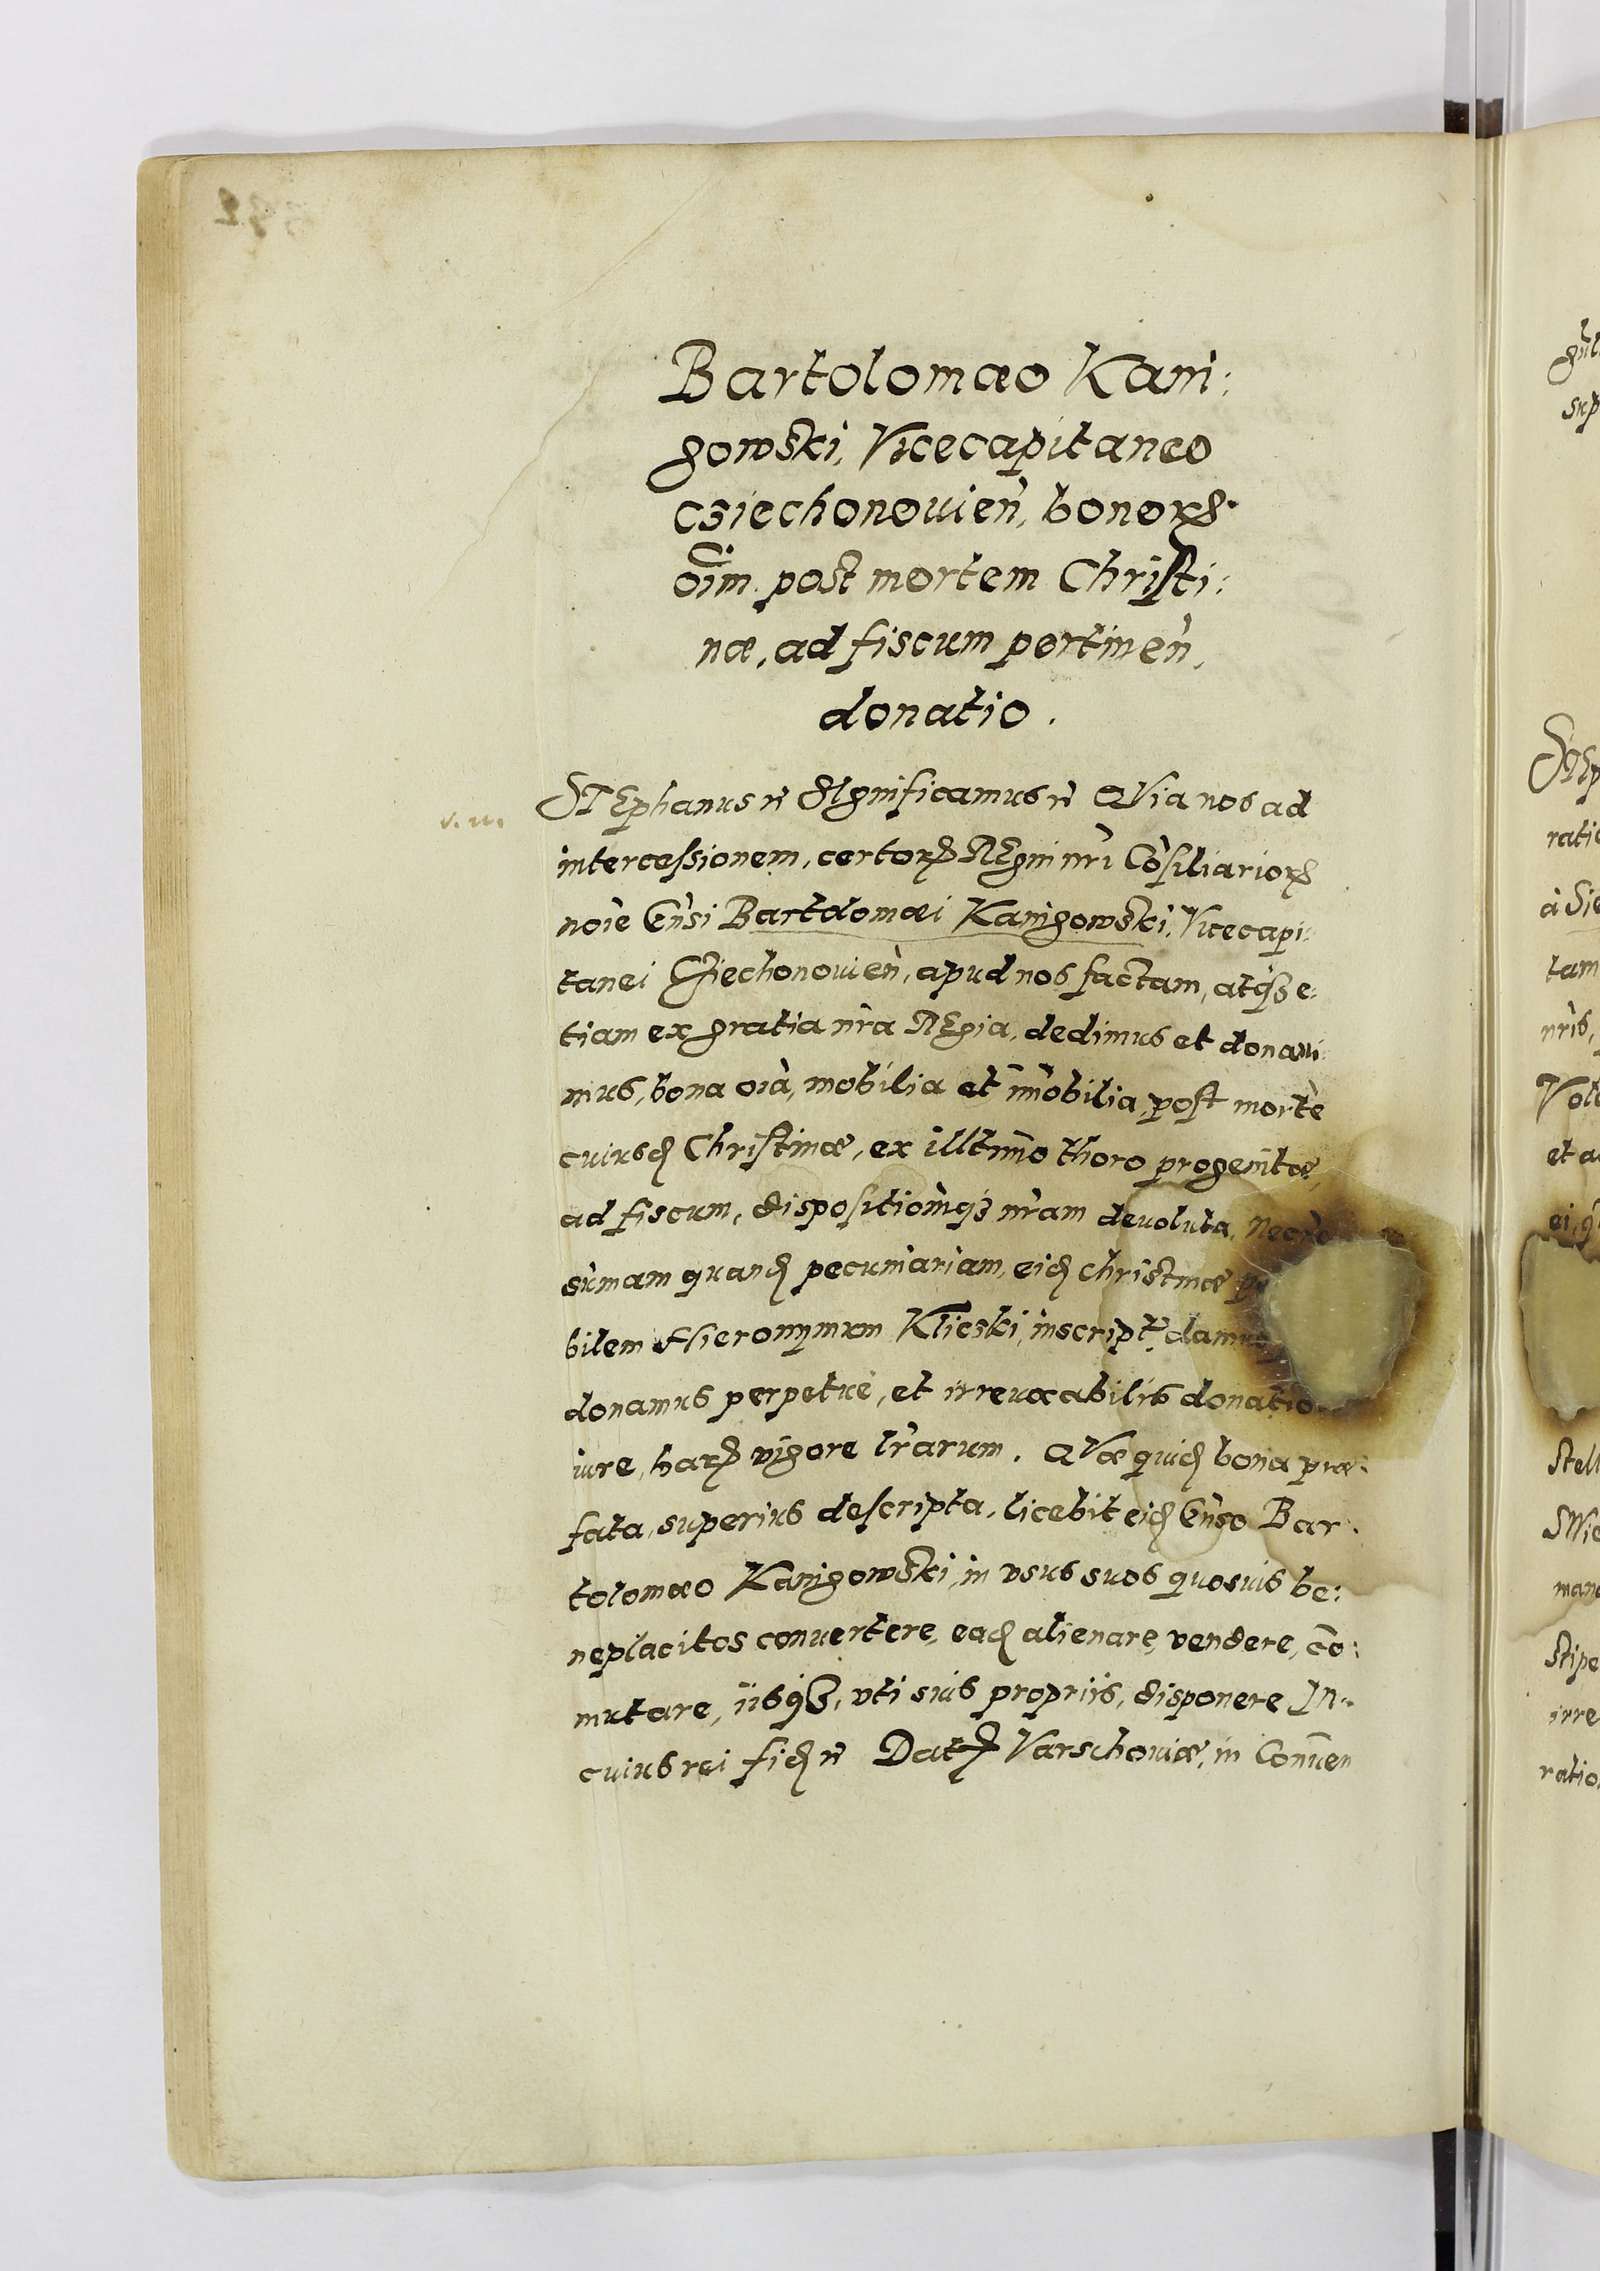 Bartolomæo Kani:
gowski, Vicecapitaneo
Csiechonouien̄, bonorꝝ
oīm post mortem Christi:
næ, ad fiscum pertinen̄,
donatio.
STEphanus rē SIgnificamus rē QVia nos ad
intercessionem, certorꝝ REgni nr̄i Cōsiliariorꝝ
noīe Gn̄si Bartolomæi Kanigowski, Vicecapi:
tanei Csiechonouien̄, apud nos factam, atqꝫ e:
tiam ex gratia nr̄a REgia, dedimus et donaui:
mus, bona oīa, mobilia et īmobilia, post mortē
cuiusd Christinæ, ex illtīmo thoro progenitæ,
ad fiscum, dispositionēqꝫ nr̄am deuoluta,
sūmam quand pecuniariam, eid Christinæ
bilem Hieronymum Klicski, inscript, damus
donamus perpetuē, et irreuocabilis donatio
iure, harꝝ vigore lr̄arum. QVæ quid bona præ:
fata, superius descripta, licebit eid Gn̄so Bar:
tolomæo Kanigowski, in vsus suos quosuis be:
neplacitos conuertere, ead alienare, vendere, cō:
mutare, ijsqꝫ, vti suis proprijs, disponere, In
cuius rei fid rē Dat Varschouiæ, in Conuen